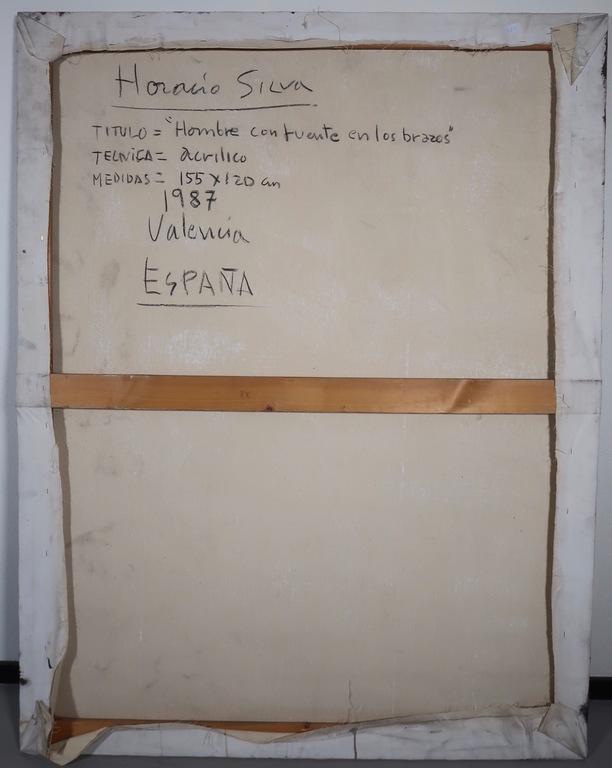 Horacio Silva
TITULO = "Hombre con fuente en los brazos"
TECNICA = acrilico
MEDIDAS = 155 x 120 cm
1987
Valencia
ESPAÑA